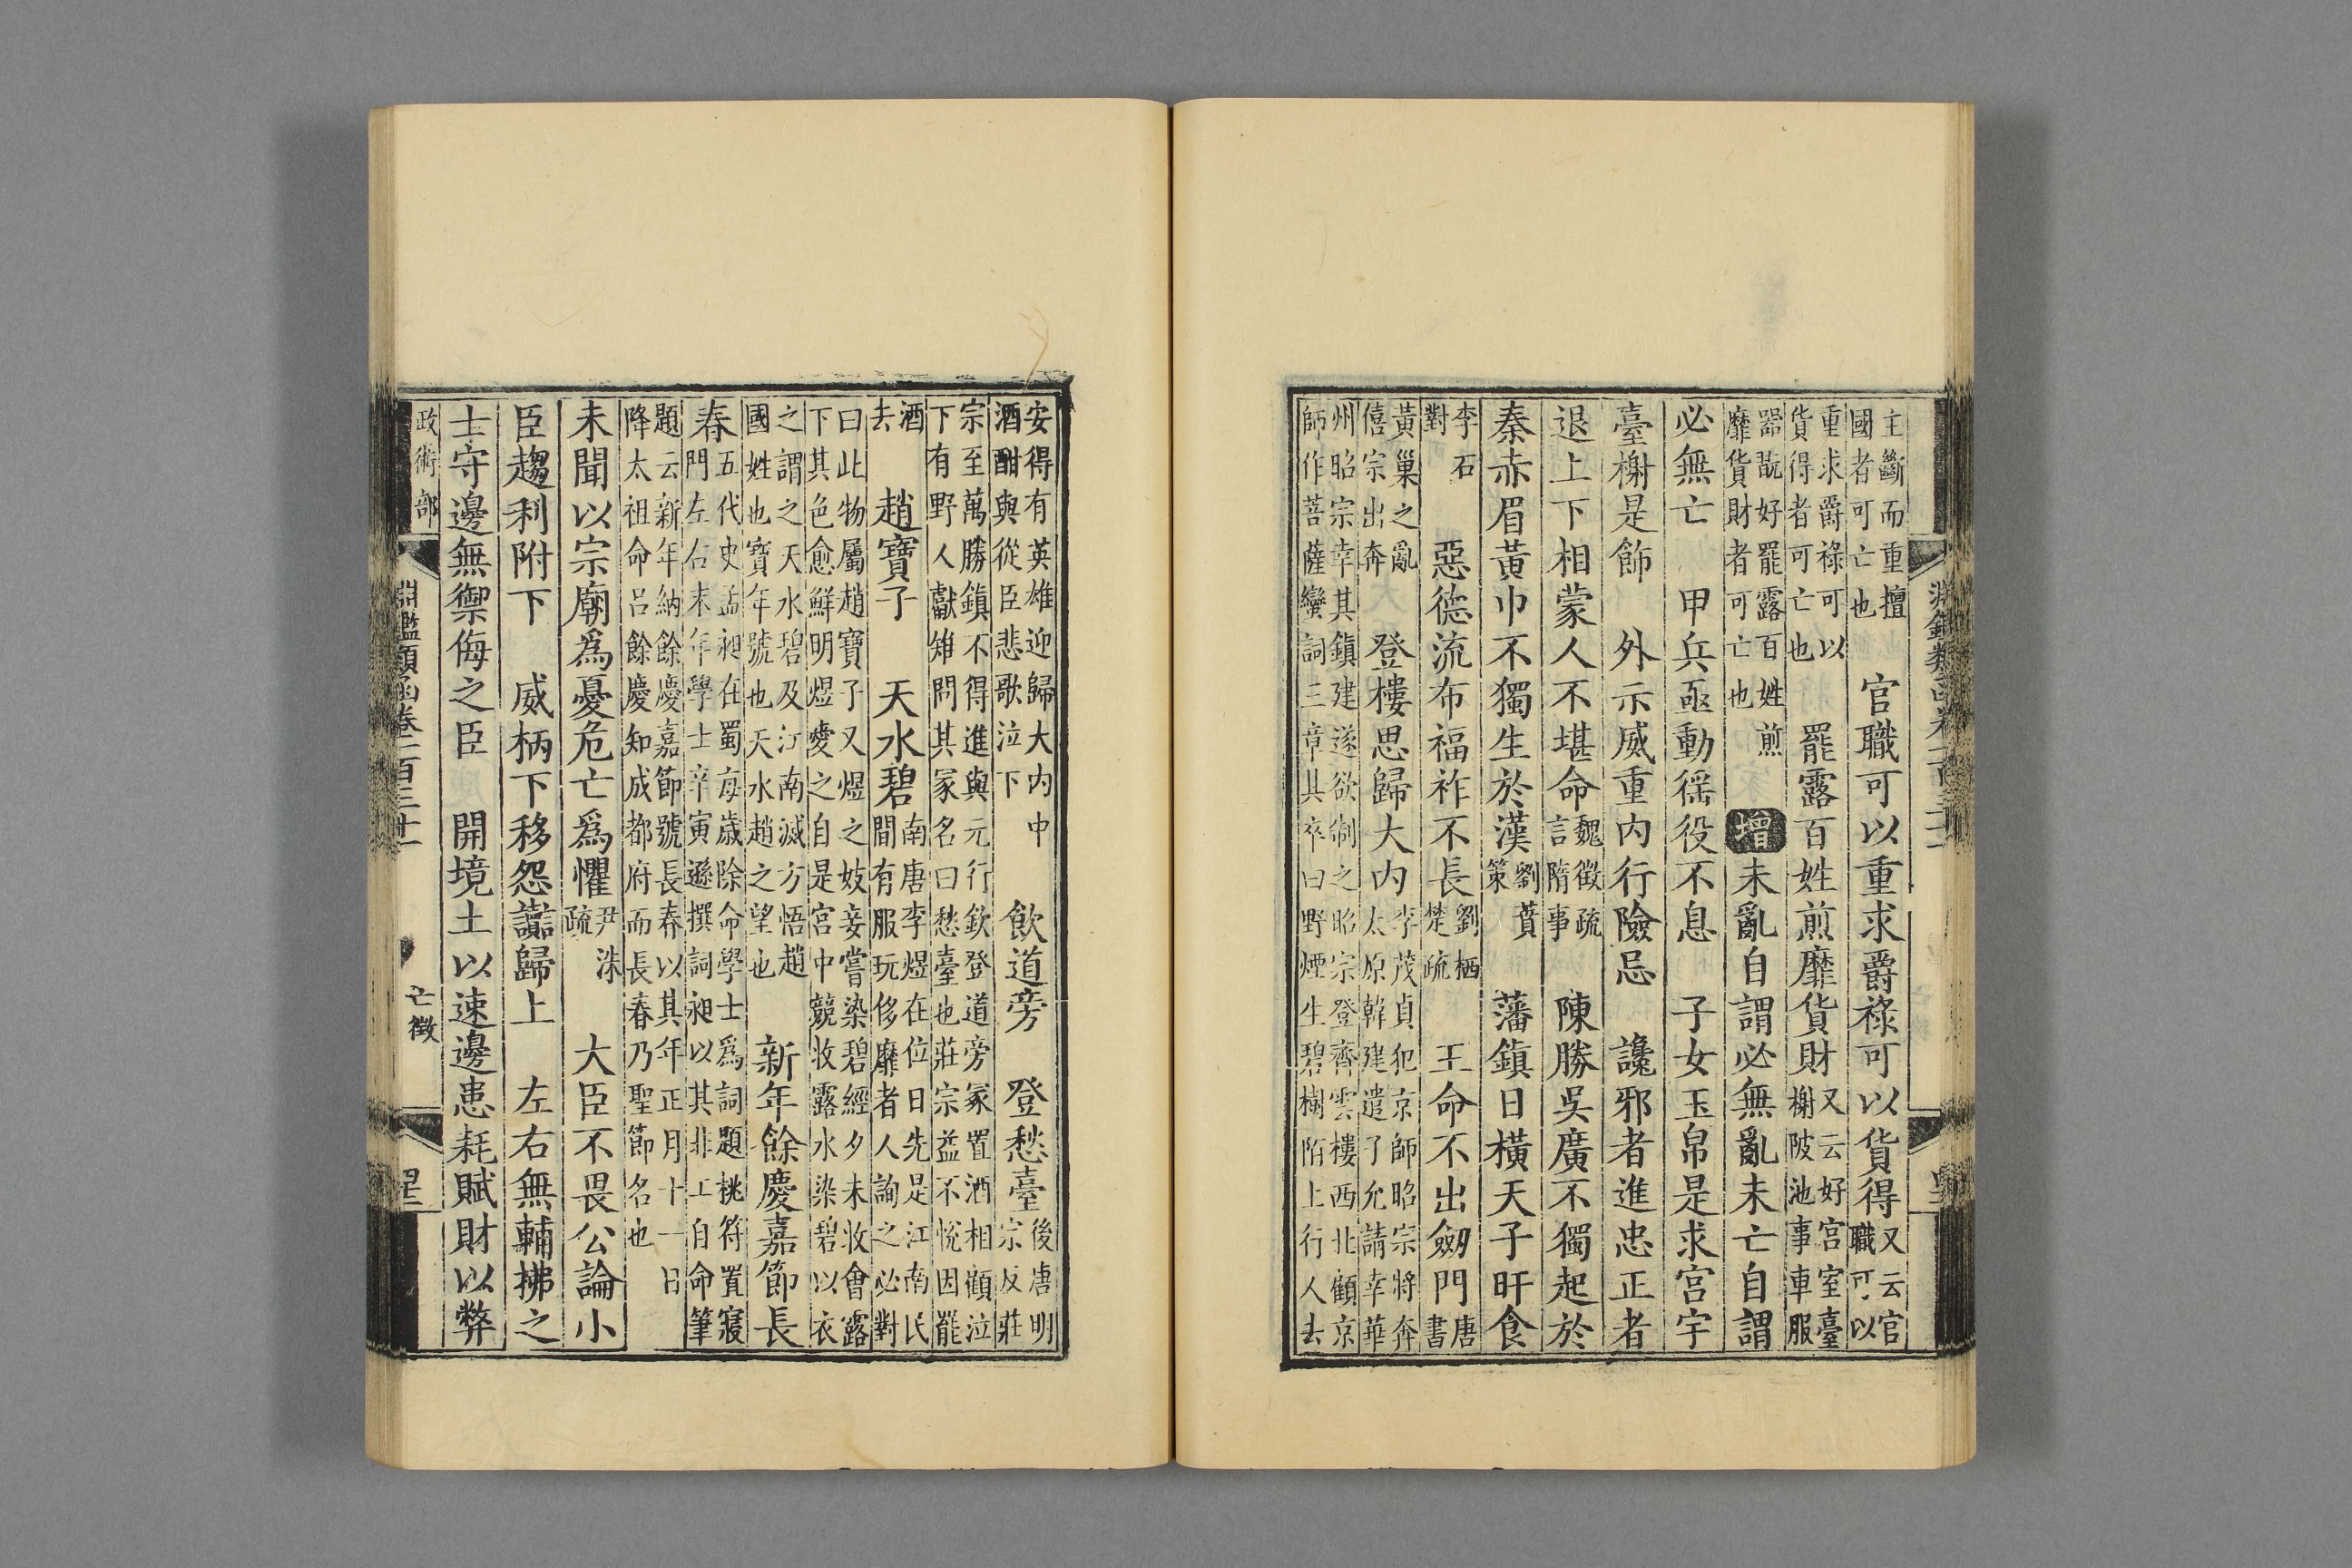 主斷而重擅
國者可亡也
官職可以重求爵祿可以貨得
又云官
職可以
重求爵祿可以
貨得者可亡也
罷露百姓煎靡貨財
又云好宮室臺
榭陂池事車服
器翫好罷露百姓煎
靡貨財者可亡也
增
未亂自謂必無亂未亡自謂
必無亡 甲兵亟動徭役不息 子女玉帛是求宮宇
臺榭是飾 外示威重內行險忌 讒邪者進忠正者
退上下相蒙人不堪命
魏徵疏
言隋事
陳勝吳廣不獨起於
秦赤眉黃巾不獨生於漢
劉蕡
策
藩鎮日橫天子旰食
李石
對
惡德流布福祚不長
劉栖
楚疏
王命不出劒門
唐
書
黃巢之亂
僖宗出奔
登樓思歸大內
李茂貞犯京師昭宗將奔
太原韓建遣子允請幸華
州昭宗幸其鎮建遂欲制之昭宗登齊雲樓西北顧京
師作菩薩蠻詞三章其卒曰野煙生碧樹陌上行人去
安得有英雄迎歸大內中
酒酣與從臣悲歌泣下
飲道旁 登愁臺
後唐明
宗反莊
宗至萬勝鎮不得進與元行欽登道旁冢置酒相顧泣
下有野人獻雉問其冢名曰愁臺也莊宗益不悅因罷
酒
去
趙寶子 天水碧
南唐李煜在位日先是江南民
間有服玩侈靡者人詢之必對
曰此物屬趙寶子又煜之妓妾嘗染碧經夕未收會露
下其色愈鮮明煜愛之自是宮中競收露水染碧以衣
之謂之天水碧及江南滅方悟趙
國姓也寶年號也天水趙之望也
新年餘慶嘉節長
春
五代史孟昶在蜀每歲除命學士爲詞題桃符置寢
門左右末年學士辛寅遜撰詞昶以其非工自命筆
題云新年納餘慶嘉節號長春以其年正月十一日
降太祖命呂餘慶知成都府而長春乃聖節名也
未聞以宗廟爲憂危亡爲懼
尹洙
疏
大臣不畏公論小
臣趨利附下 威柄下移怨讟歸上 左右無輔拂之
士守邊無禦侮之臣 開境土以速邊患耗賦財以弊
政術部
淵鑑類函卷一百三十一
亡徵